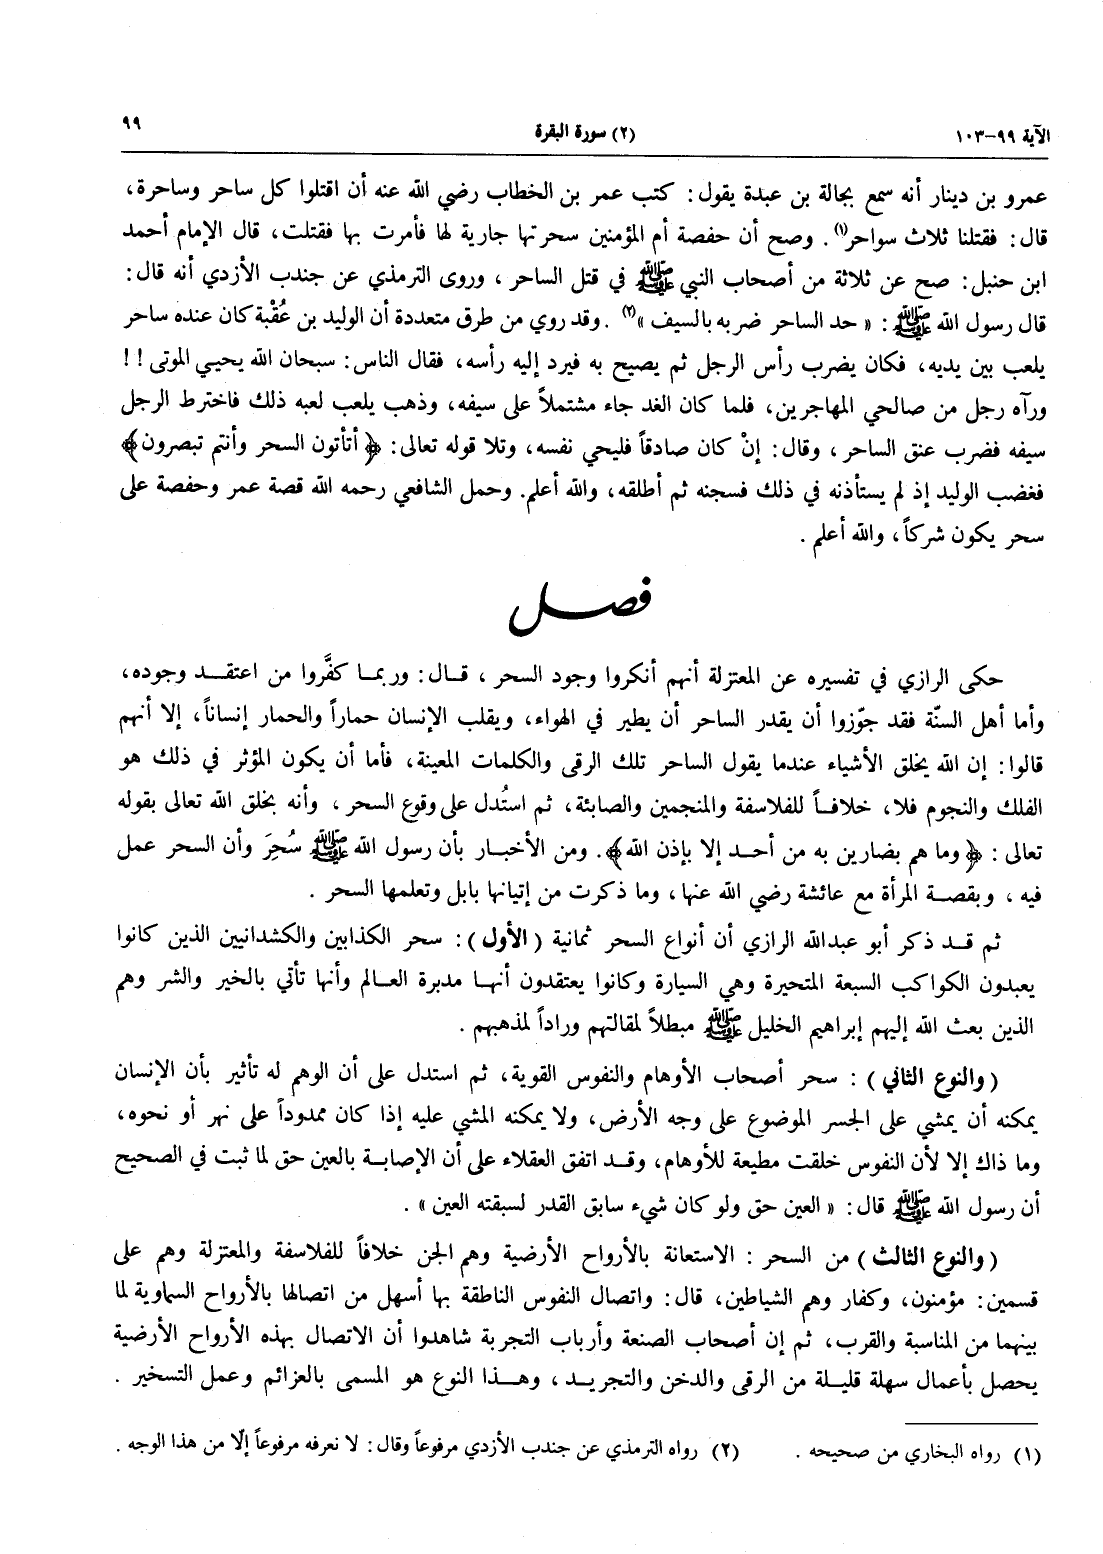 الآية ٩٩-١٠٣ (٢) سورة البقرة ٩٩
عمرو بن دينار أنه سمع بجالة بن عبدة يقول: كتب عمر بن الخطاب رضي الله عنه أن اقتلوا كل ساحر وساحرة،
قال: فقتلنا ثلاث سواحر(١). وصح أن حفصة أم المؤمنين سحرتها جارية لها فأمرت بها فقتلت، قال الإمام أحمد
ابن حنبل: صح عن ثلاثة من أصحاب النبي ﷺ في قتل الساحر، وروى الترمذي عن جندب الأزدي أنه قال:
قال رسول الله ﷺ: « حد الساحر ضربه بالسيف »(٢). وقد روي من طرق متعددة أن الوليد بن عُقْبة كان عنده ساحر
يلعب بين يديه، فكان يضرب رأس الرجل ثم يصيح به فيرد إليه رأسه، فقال الناس: سبحان الله يحيـي الموتى!!
ورآه رجل من صالحي المهاجرين، فلما كان الغد جاء مشتملاً على سيفه، وذهب يلعب لعبه ذلك فاخترط الرجل
سيفه فضرب عنق الساحر، وقال: إنْ كان صادقاً فليحي نفسه، وتلا قوله تعالى: ﴿أتأتون السحر وأنتم تبصرون﴾
فغضب الوليد إذ لم يستأذنه في ذلك فسجنه ثم أطلقه، والله أعلم. وحمل الشافعي رحمه الله قصة عمر وحفصة على
سحر يكون شركاً، والله أعلم.
فصل
حكى الرازي في تفسيره عن المعتزلة أنهم أنكروا وجود السحر، قال: وربما كفَّروا من اعتقد وجوده،
وأما أهل السنّة فقد جوّزوا أن يقدر الساحر أن يطير في الهواء، ويقلب الإنسان حماراً والحمار إنساناً، إلا أنهم
قالوا: إن الله يخلق الأشياء عندما يقول الساحر تلك الرقى والكلمات المعينة، فأما أن يكون المؤثر في ذلك هو
الفلك والنجوم فلا، خلافاً للفلاسفة والمنجمين والصابئة، ثم استُدل على وقوع السحر، وأنه بخلق الله تعالى بقوله
تعالى: ﴿وما هم بضارين به من أحد إلا بإذن الله﴾. ومن الأخبار بأن رسول الله ﷺ سُحِرَ وأن السحر عمل
فيه، وبقصة المرأة مع عائشة رضي الله عنها، وما ذكرت من إتيانها بابل وتعلمها السحر.
ثم قد ذكر أبو عبدالله الرازي أن أنواع السحر ثمانية (الأول): سحر الكذابين والكشدانيين الذين كانوا
يعبدون الكواكب السبعة المتحيرة وهي السيارة وكانوا يعتقدون أنها مدبرة العالم وأنها تأتي بالخير والشر وهم
الذين بعث الله إليهم إبراهيم الخليل ﷺ مبطلاً لمقالتهم وراداً لمذهبهم.
(والنوع الثاني): سحر أصحاب الأوهام والنفوس القوية، ثم استدل على أن الوهم له تأثير بأن الإنسان
يمكنه أن يمشي على الجسر الموضوع على وجه الأرض، ولا يمكنه المشي عليه إذا كان ممدوداً على نهر أو نحوه،
وما ذاك إلا لأن النفوس خلقت مطيعة للأوهام، وقد اتفق العقلاء على أن الإصابة بالعين حق لما ثبت في الصحيح
أن رسول الله ﷺ قال: « العين حق ولو كان شيء سابق القدر لسبقته العين ».
(والنوع الثالث) من السحر: الاستعانة بالأرواح الأرضية وهم الجن خلافاً للفلاسفة والمعتزلة وهم على
قسمين: مؤمنون، وكفار وهم الشياطين، قال: واتصال النفوس الناطقة بها أسهل من اتصالها بالأرواح السماوية لما
بينهما من المناسبة والقرب، ثم إن أصحاب الصنعة وأرباب التجربة شاهدوا أن الاتصال بهذه الأرواح الأرضية
يحصل بأعمال سهلة قليلة من الرقى والدخن والتجريد، وهذا النوع هو المسمى بالعزائم وعمل التسخير.
(١) رواه البخاري من صحيحه. (٢) رواه الترمذي عن جندب الأزدي مرفوعاً وقال: لا نعرفه مرفوعاً إلّا من هذا الوجه.